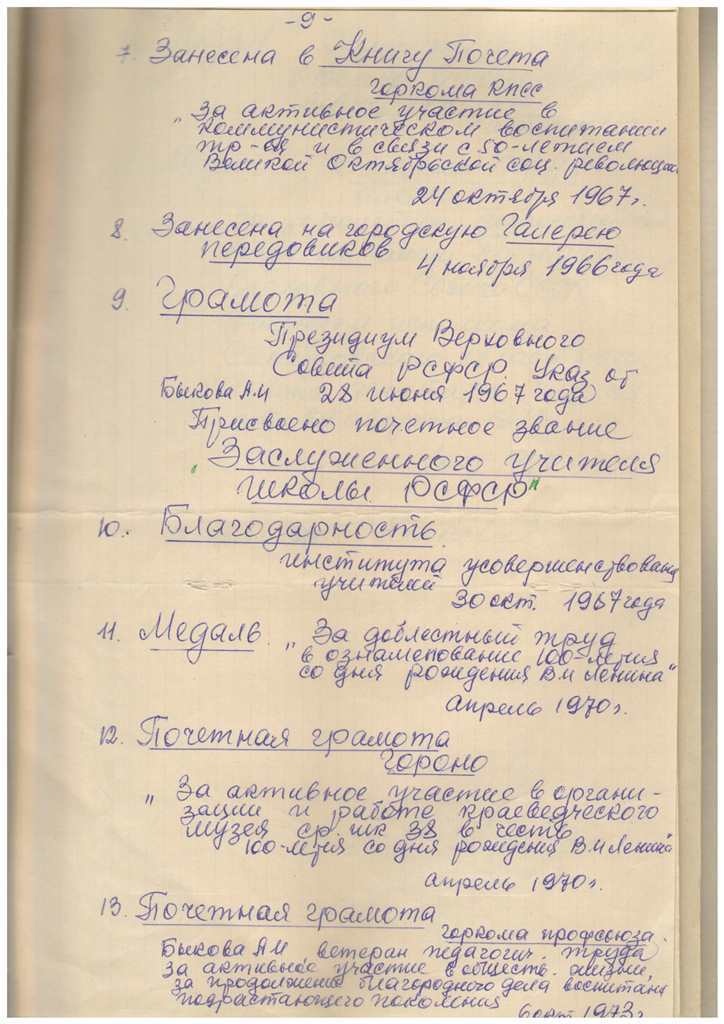 -9-
7. Занесена в Книгу Почета
горкома КПСС
"За активное участие в
коммунистическом воспитании
тр-ся и в связи с 50-летием
Великой Октябрьской соц. революции
24 октября 1967г.
8. Занесена на городскую Галерею
передовиков
4 ноября 1966 года
9. Грамота
Президиум Верховного
Совета РСФСР. Указ от
Быкова А.И 28 июня 1967 года
Присвоено почетное звание
"Заслуженного учителя
школы РСФСР"
10. Благодарность
института усовершенствован
учителей
30 окт. 1967 года
11. Медаль. "За доблестный труд
в ознаменование 100-летия
со дня рождения В.И Ленина"
апрель 1970г.
12. Почетная грамота
гороно
"За активное участие в органи-
зации и работе краеведческого
музея ср. шк 38 в честь
100-летия со дня рождения В.И Ленина"
апрель 1970г.
13. Почетная грамота
горкома профсоюза.
Быкова АИ ветеран педагогич. труда
за активное участие в обществ. жизни,
за продолжение благородного дела воспитани
подрастающего поколения
6 окт 1973г.